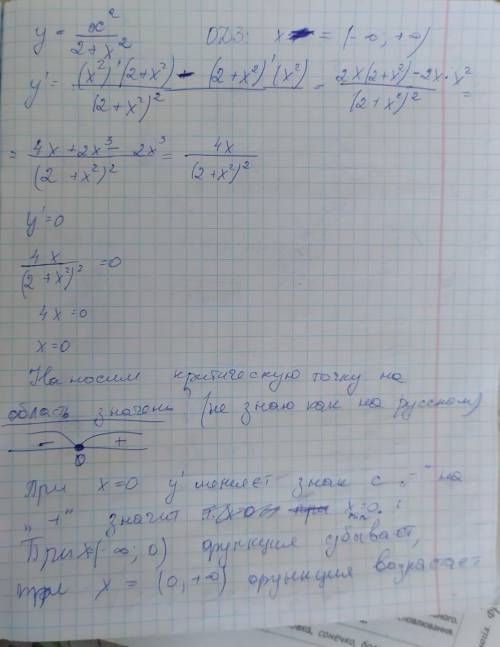 y = x²/(2+x²) ОДЗ: x = (-∞; +∞)
y' = ((x²)'(2+x²) - (2+x²)'(x²))/(2+x²)² = (2x(2+x²)-2x·x²)/(2+x²)² =
= (4x+2x³-2x³)/(2+x²)² = 4x/(2+x²)²
y'=0
4x/(2+x²)² =0
4x=0
x=0
Наносим критическую точку на
область значень? (не знаю как на русском)
- +
0
При x=0 y' меняет знак с „-" на
„+" значит x min=0.
При x(-∞; 0) функция убывает,
при x = (0; +∞) функция возрастает
сонечко,